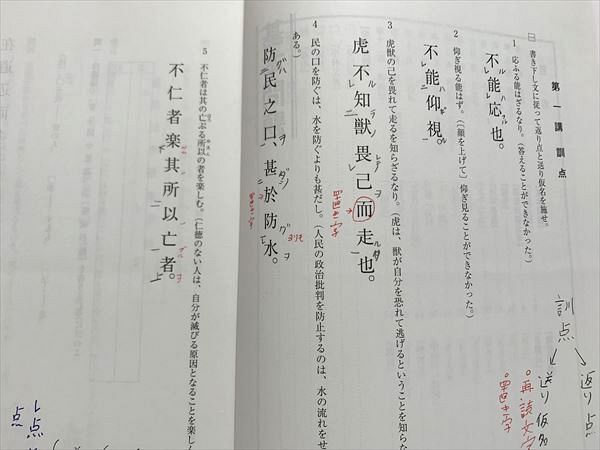 第一講 訓点
書き下し文に従って返り点と送り仮名を施せ。
1 応ふる能はざるなり。（答えることができなかった。）
不能応也。
2 仰ぎ視る能はず。（（顔を上げて）仰ぎ見ることができなかった。）
不能仰視。
3 虎獣の己を畏れて走るを知らざるなり。（虎は、獣が自分を恐れて逃げるということを知らな
虎不知獣畏己而走也。
置き字
4 民の口を防ぐは、水を防ぐよりも甚だし。（人民の政治批判を防止するのは、水の流れをせ
ある。）
防民之口、甚於防水。
置き字
5 不仁者は其の亡ぶる所以の者を楽しむ。（仁徳のない人は、自分が滅びる原因となることを楽しん
不仁者楽其所以亡者。
訓点
返り点
送り仮名
・再読文字
・置き字
レ点
点